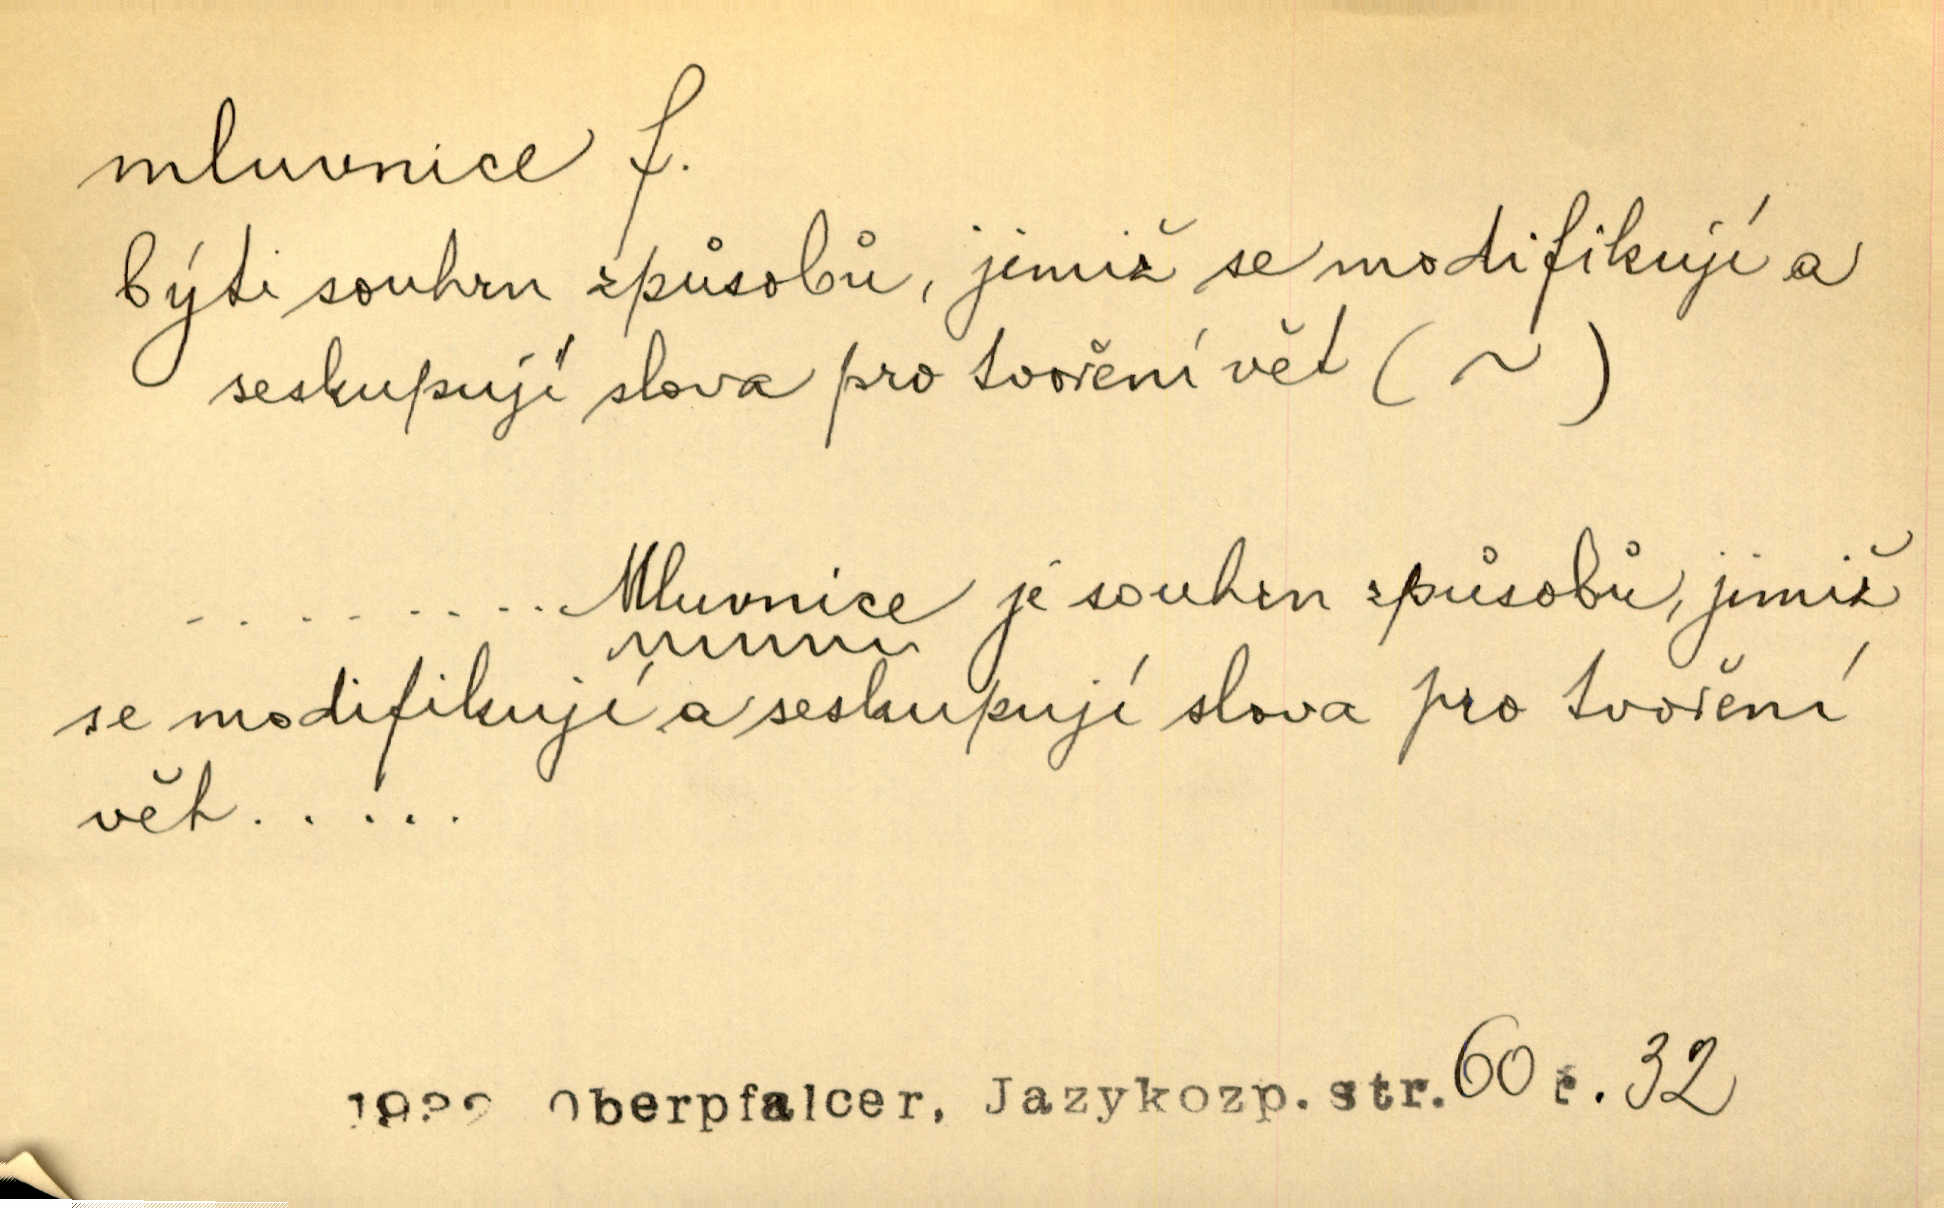 mluvnice f.
býti souhrn způsobů, jimiž se modifikují a
seskupují slova pro tvoření vět (~)
. . . . . . . . . Mluvnice je souhrn způsobů, jimiž
se modifikují a seskupují slova pro tvoření
vět . . . . .
Oberpfalcer, Jazykozp. str. 60 ř. 32